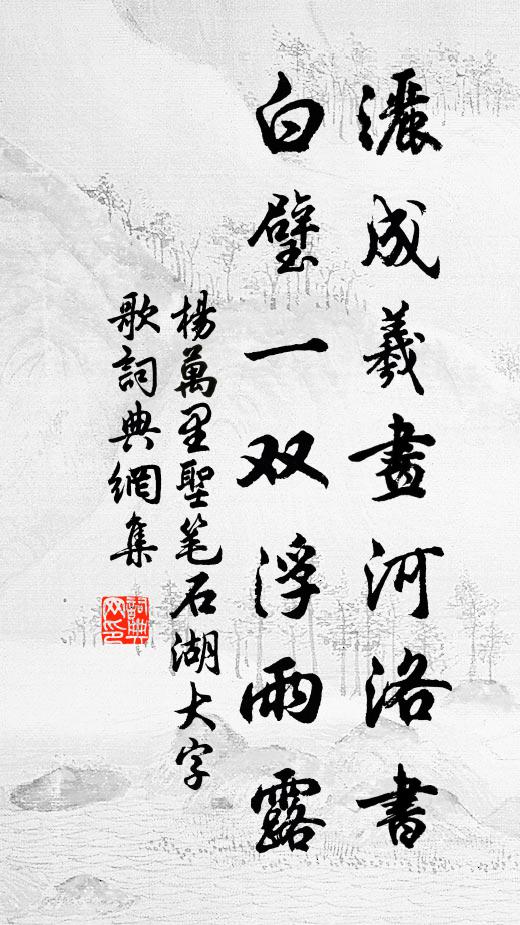 灑成羲畫河洛書
白璧一双浮雨露
楊萬里聖笔石湖大字
歌詞典網集
詞典網印